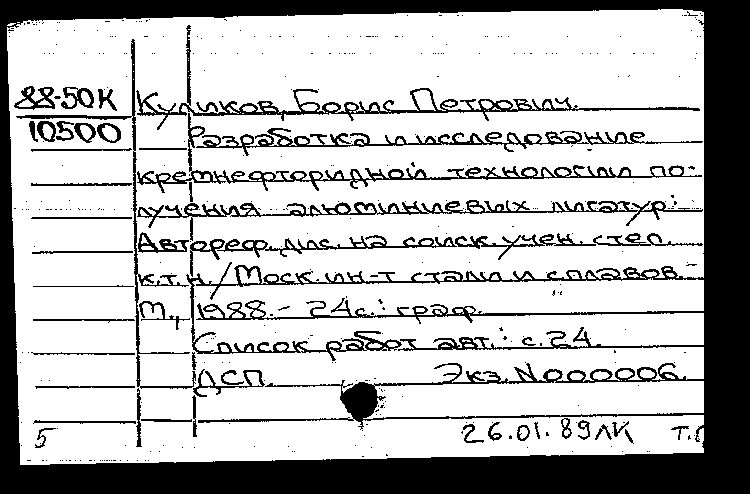 88-50К Куликов, Борис Петрович.
10500 Разработка и исследование
кремнефторидной технологии по-
лучения алюминиевых лигатур:
Автореф. дис. на соиск. учен. степ.
к.т.н./Моск. ин-т стали и сплавов.-
М., 1988.- 24с.: граф.
Список работ авт.: с.24.
ДСП. Экз. N000006.
5 26.01.89ЛК